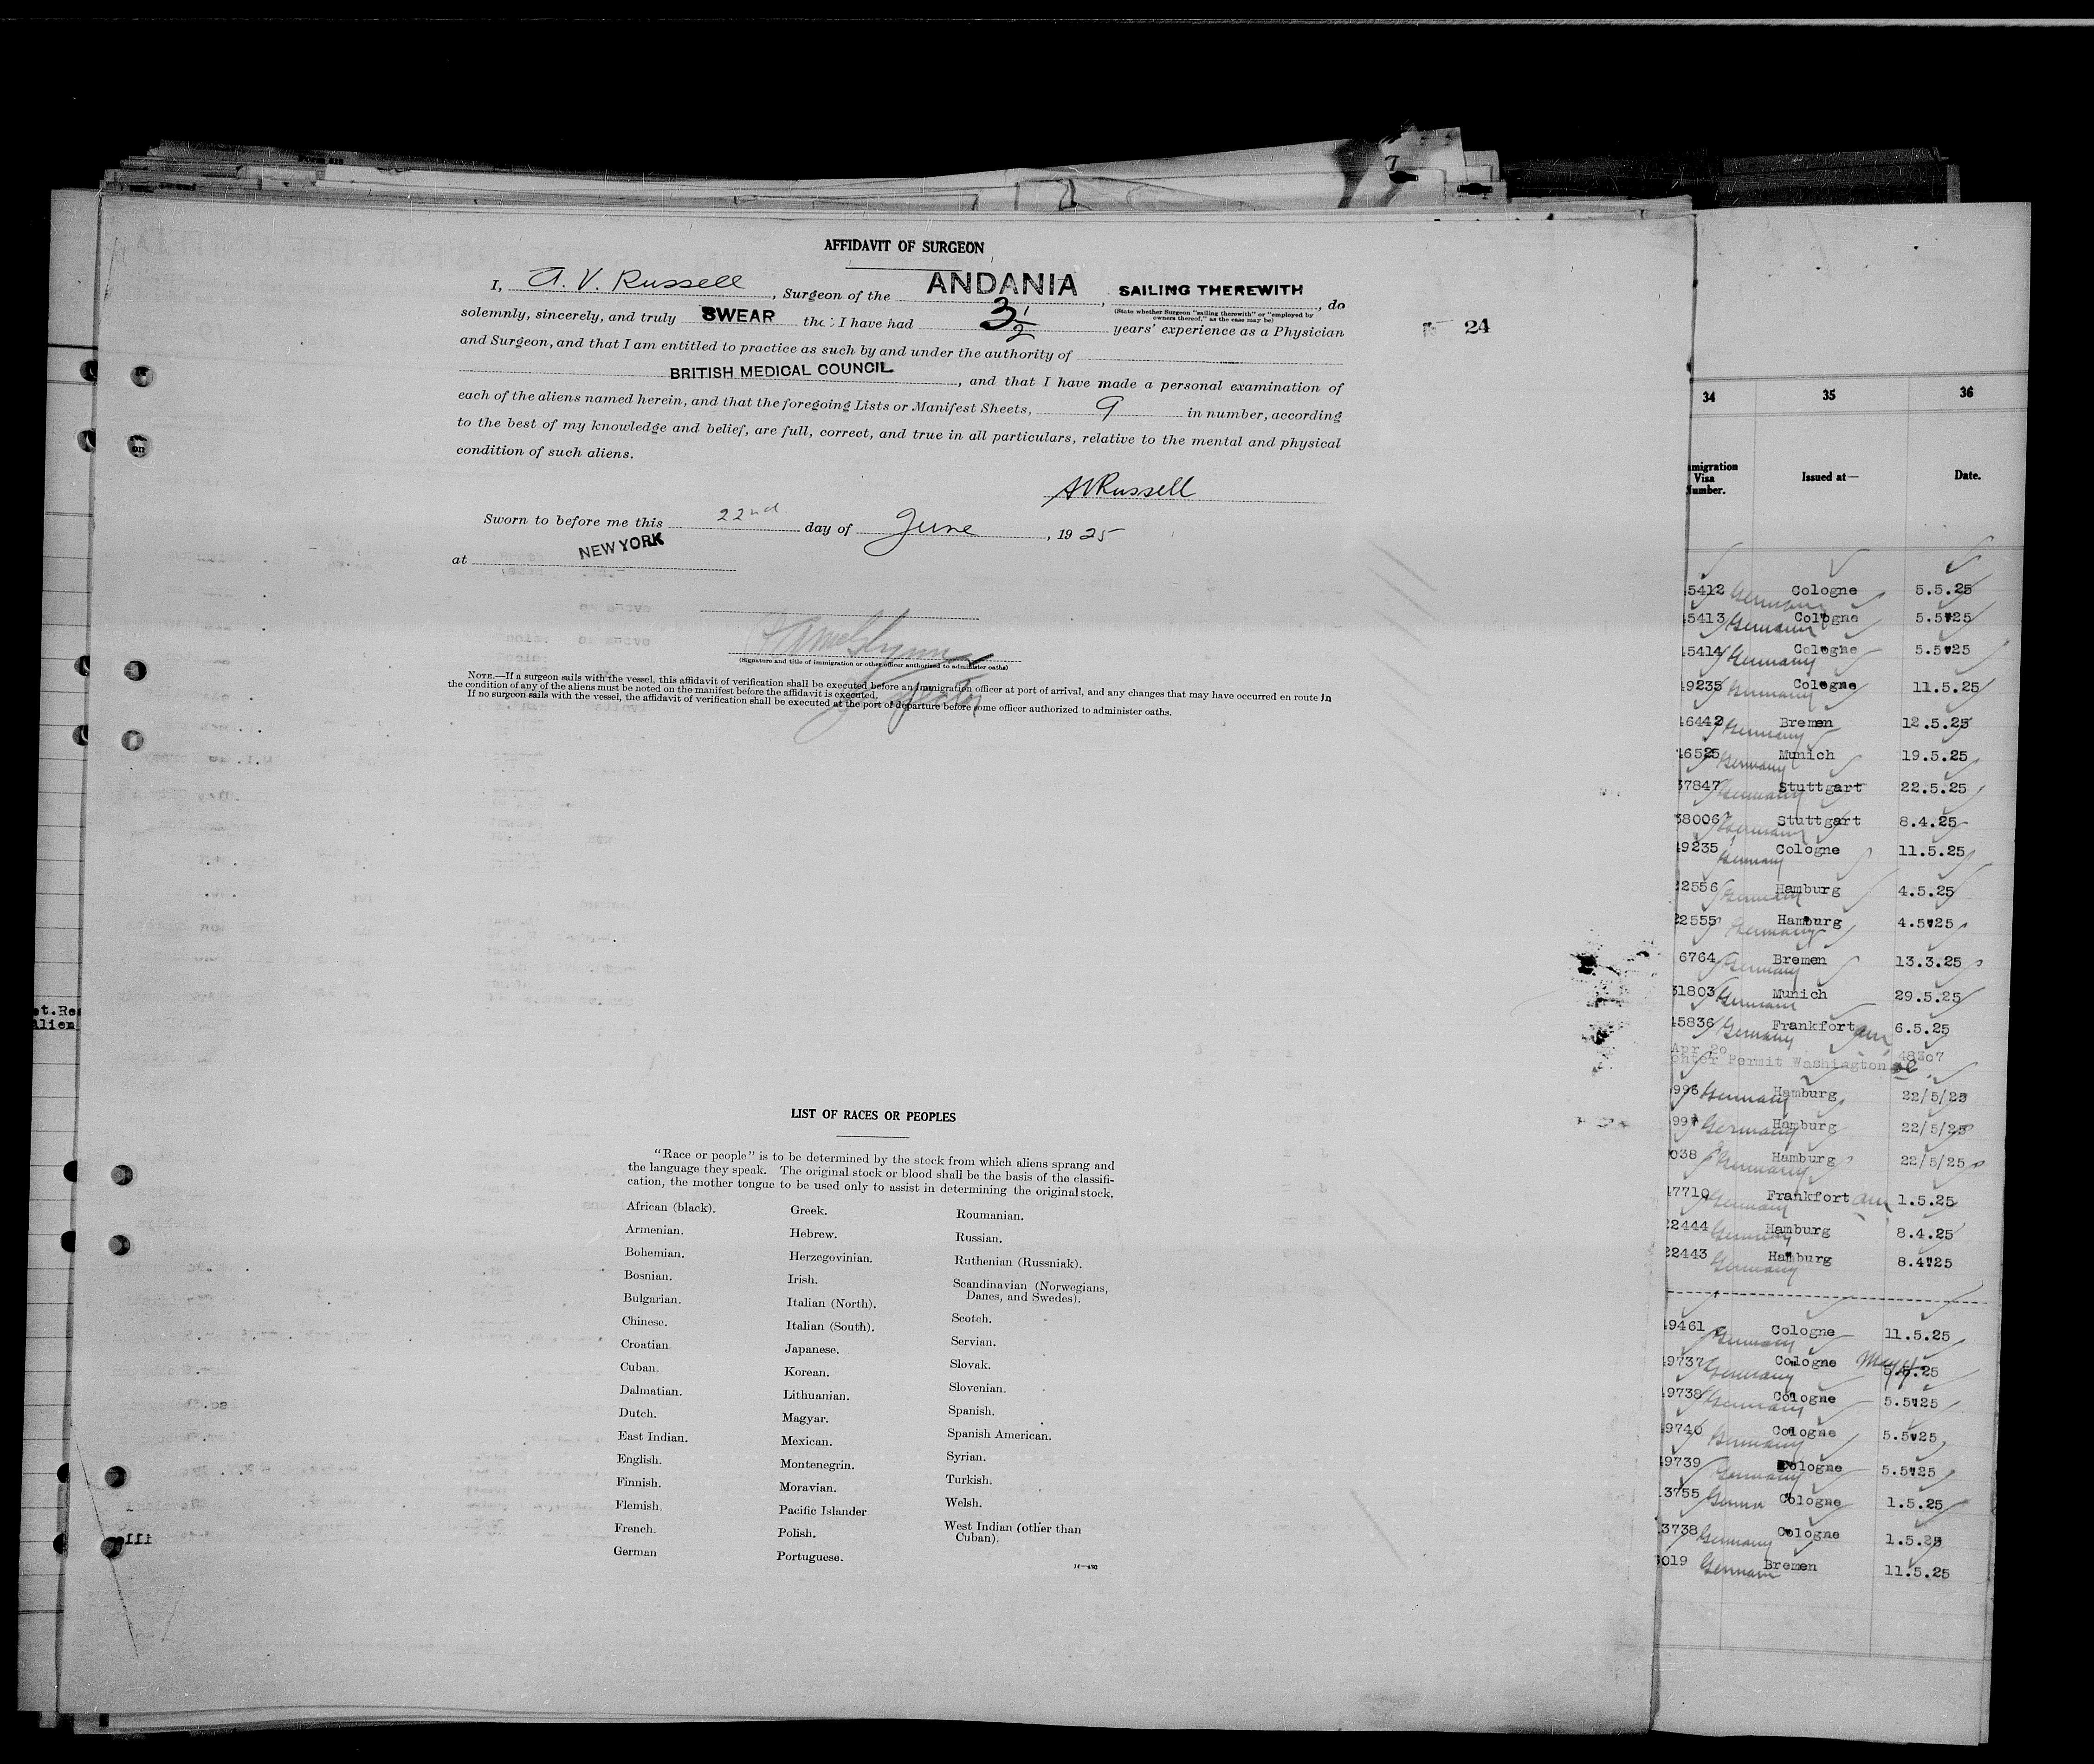 AFFIDAVIT OF SURGEON
I, A. V. Russell, Surgeon of the ANDANIA, SAILING THEREWITH, do
(State whether Surgeon "sailing therewith" or "employed by
owners thereof," as the case may be)
solemnly, sincerely, and truly SWEAR that I have had 3 1/2 years' experience as a Physician
and Surgeon, and that I am entitled to practice as such by and under the authority of
BRITISH MEDICAL COUNCIL, and that I have made a personal examination of
each of the aliens named herein, and that the foregoing Lists or Manifest Sheets, 9 in number, according
to the best of my knowledge and belief, are full, correct, and true in all particulars, relative to the mental and physical
condition of such aliens.
AVRussell
Sworn to before me this 22nd day of June, 1925
at NEW YORK
Inspector
(Signature and title of immigration or other officer authorized to administer oaths)
NOTE.—If a surgeon sails with the vessel, this affidavit of verification shall be executed before an immigration officer at port of arrival, and any changes that may have occurred en route in
the condition of any of the aliens must be noted on the manifest before the affidavit is executed.
If no surgeon sails with the vessel, the affidavit of verification shall be executed at the port of departure before some officer authorized to administer oaths.
24
LIST OF RACES OR PEOPLES
"Race or people" is to be determined by the stock from which aliens sprang and
the language they speak. The original stock or blood shall be the basis of the classifi-
cation, the mother tongue to be used only to assist in determining the original stock.
African (black).
Armenian.
Bohemian.
Bosnian.
Bulgarian.
Chinese.
Croatian
Cuban.
Dalmatian.
Dutch.
East Indian.
English.
Finnish.
Flemish.
French.
German
Greek.
Hebrew.
Herzegovinian.
Irish.
Italian (North).
Italian (South).
Japanese.
Korean.
Lithuanian.
Magyar.
Mexican.
Montenegrin.
Moravian.
Pacific Islander
Polish.
Portuguese.
Roumanian.
Russian.
Ruthenian (Russniak).
Scandinavian (Norwegians,
Danes, and Swedes).
Scotch.
Servian.
Slovak.
Slovenian.
Spanish.
Spanish American.
Syrian.
Turkish.
Welsh.
West Indian (other than
Cuban).
34 35 36
migration
Visa
Number.
Issued at—
Date.
5412 Germany Cologne 5.5.25
5413 Germany Cologne 5.5"25
5414 Germany Cologne 5.5"25
9235 Germany Cologne 11.5.25
6442 Germany Bremen 12.5.25
6525 Germany Munich 19.5.25
37847 Germany Stuttgart 22.5.25
38006 Germany Stuttgart 8.4.25
9235 Germany Cologne 11.5.25
22556 Germany Hamburg 4.5.25
22555 Germany Hamburg 4.5"25
6764 Germany Bremen 13.3.25
31803 Germany Munich 29.5.25
45836 Germany Frankfort am 6.5.25
Apr 20 48307
Permit Washington
996 Germany Hamburg 22/5/25
997 Germany Hamburg 22/5/25
038 Germany Hamburg 22/5/25
47710 Germany Frankfort am 1.5.25
22444 Germany Hamburg 8.4.25
22443 Germany Hamburg 8.4"25
9461 Germany Cologne 11.5.25
9737 Germany Cologne May 5.5.25
9738 Germany Cologne 5.5"25
9740 Germany Cologne 5.5"25
9739 Germany Cologne 5.5"25
3755 Cologne 1.5.25
3738 Germany Cologne 1.5.25
019 Germany Bremen 11.5.25